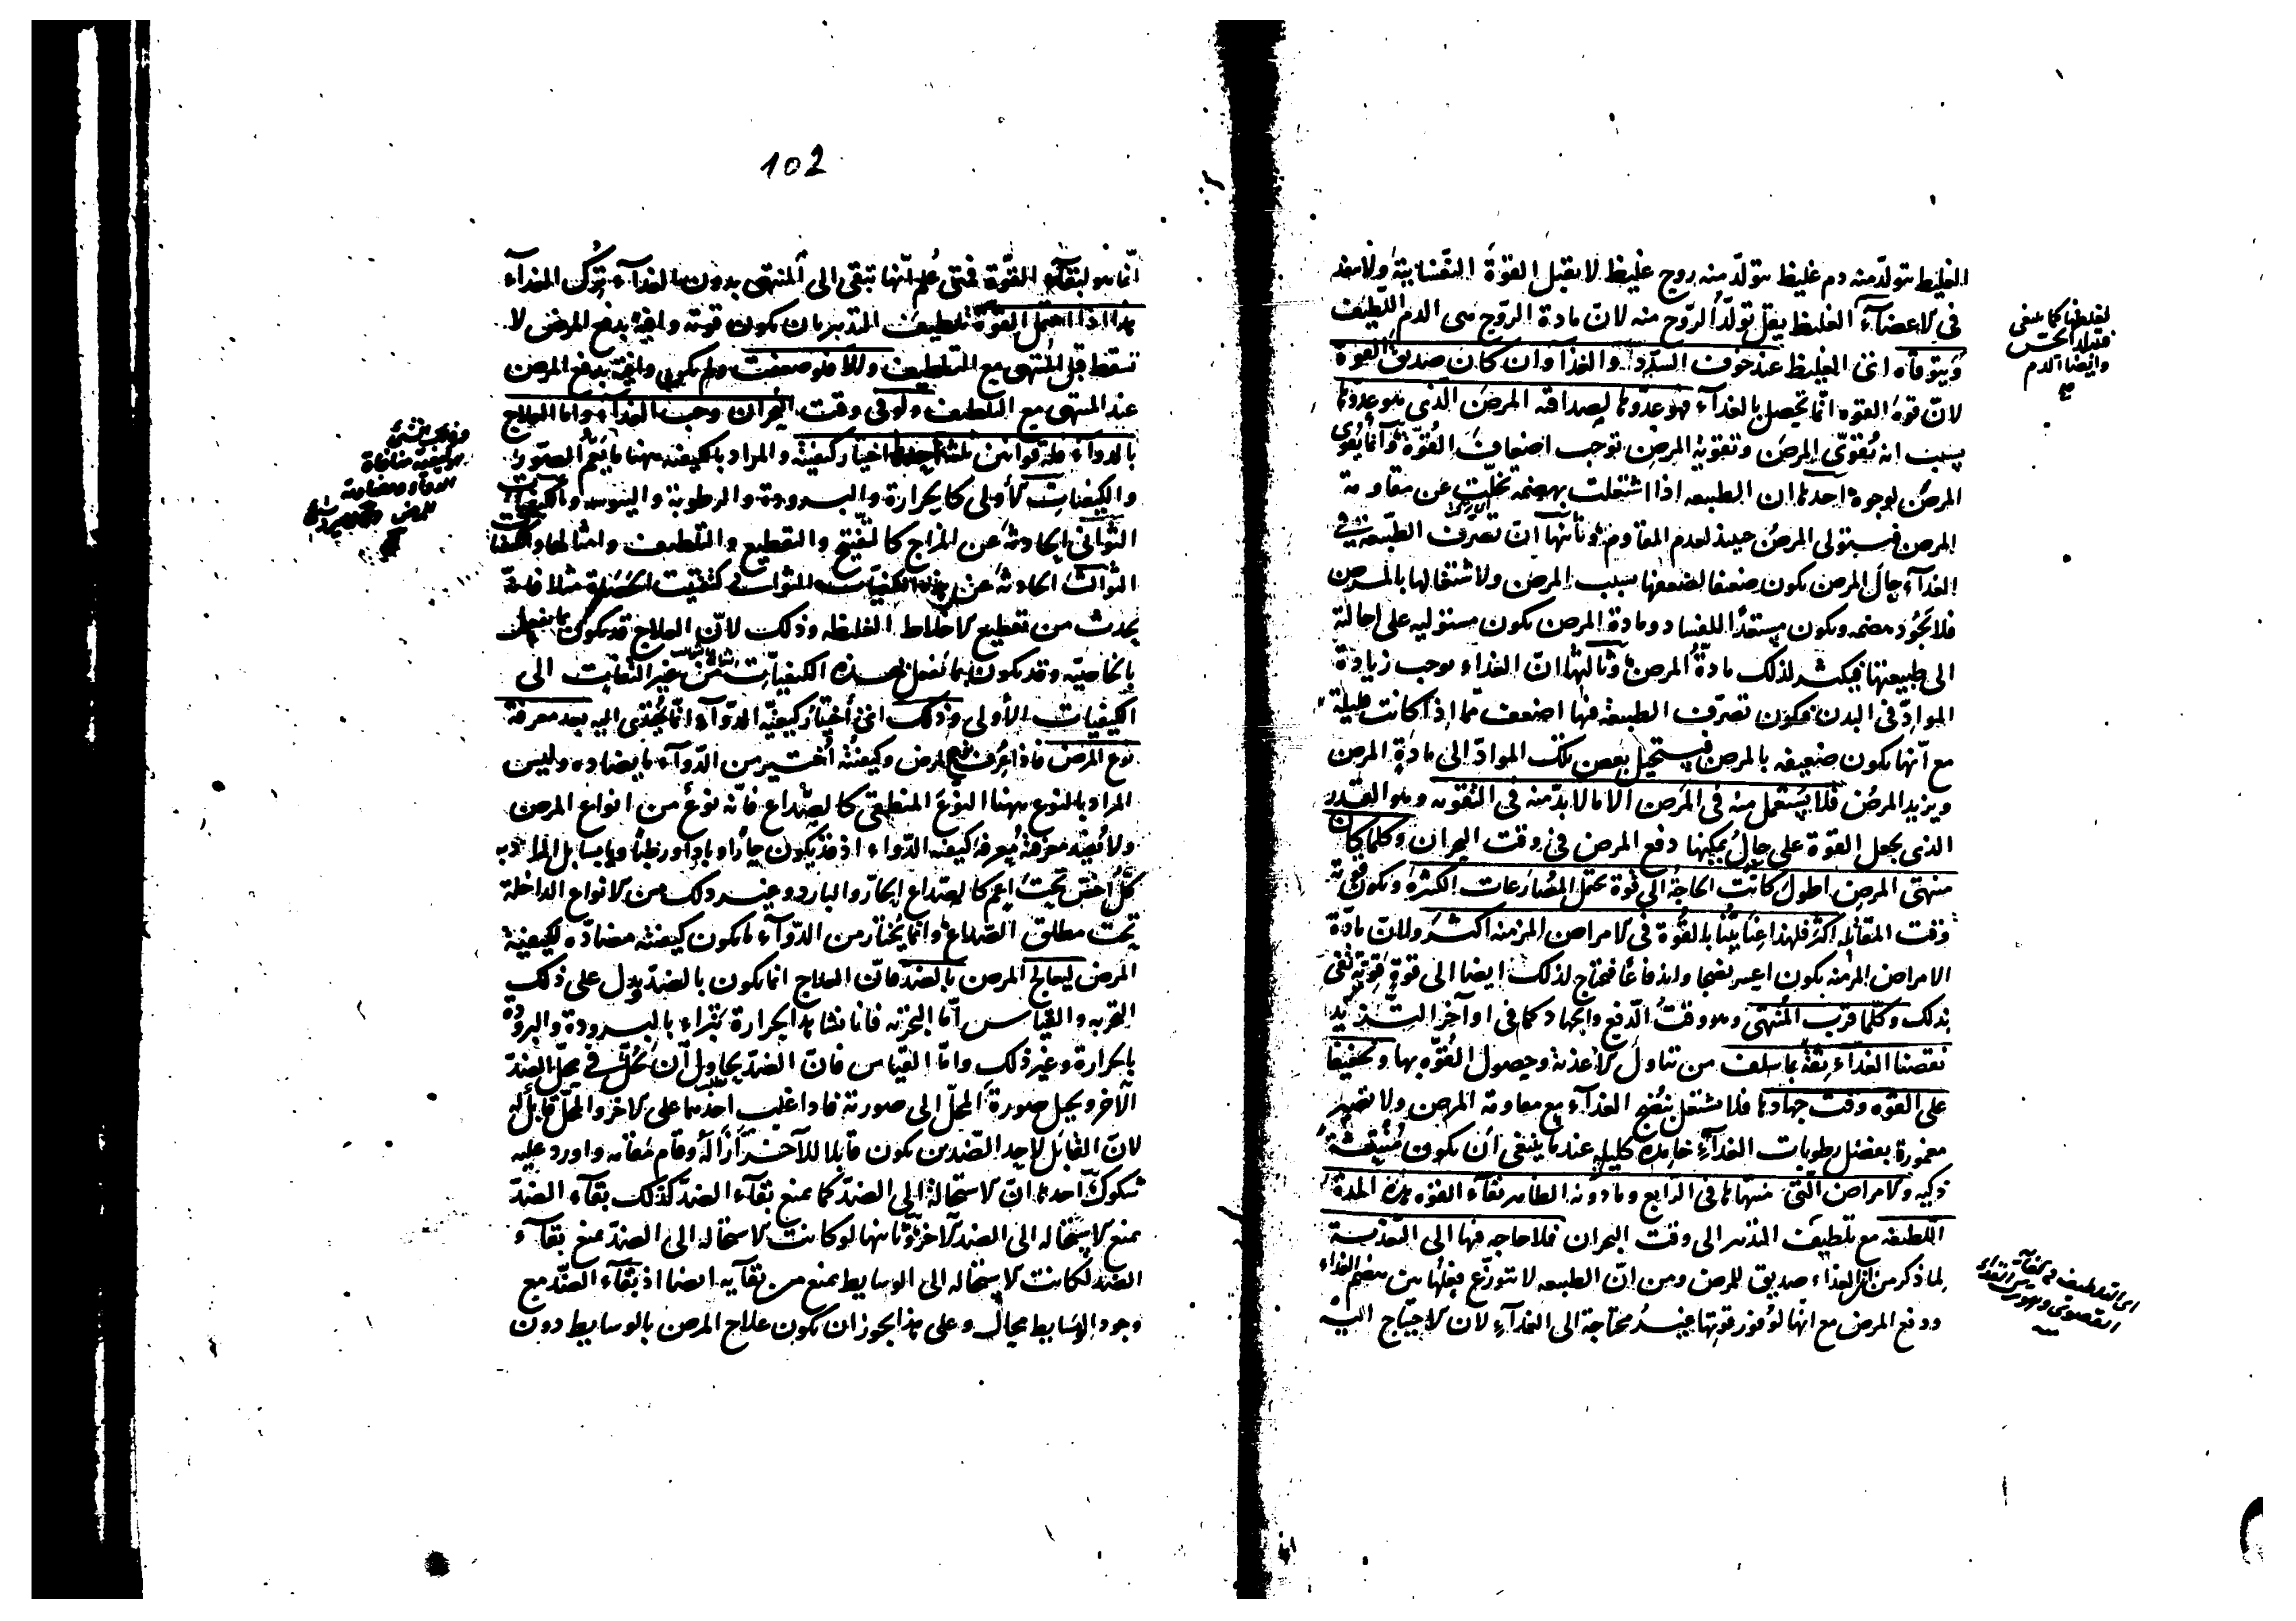 الغليظ يتولد منه دم غليظ يتولد منه روح غليظ لا يقبل القوة النفسانية ولا ينفذ
في الاعضاء الغليظ يقل تولد الروح منه لان مادة الروح هي الدم اللطيف
ويتوقاه اعنى الغليظ عند خوف السدد والغذا وان كان صديق القوة
لان قوة القوه انما تحصل بالغذاء فهو عدوها لصداقه المرض الذى هو عدوها
بسبب انه يقوى المرض وتقوية المرض توجب اضعاف القوة وانما يقوى
المرض لوجوه احدها ان الطبيعه اذا اشتغلت بهضمه تخلت عن مقاومة
المرض فيستولى المرض حينئذ لعدم المقاوم وثانيها ان تصرف الطبيعة في
الغذاء حال المرض يكون ضعيفا لضعفها بسبب المرض ولاشتغالها بالمرض
فلا يجود هضمه ويكون مستعدا للفساد ومادة المرض يكون مستوليه على احالة
الى طبيعتها فيكثر لذلك مادة المرض وثالثها ان الغذاء يوجب زيادة
المواد في البدن فيكون تصرف الطبيعه فيها اضعف مما اذا كانت قليلة
مع انها يكون ضعيفه بالمرض فيستحيل بعض تلك المواد الى مادة المرض
ويزيد المرض فلا يستعمل منه في المرض الا ما لا بد منه في التقويه وهو القدر
الذى يجعل القوة على حال يمكنها دفع المرض في وقت البحران وكلما كان
منتهى المرض اطول كانت الحاجة الى قوة يحتمل المصارعات الكثيرة ويكون قوية
وقت المقابله اكثر فلهذا عنايتنا بالقوة في الامراض المزمنه اكثر ولان مادة
الامراض المزمنه يكون اعسر نضجا واندفاعا فيحتاج لذلك ايضا الى قوة قوية تفى
بذلك وكلما قرب المنتهى وهو وقت الدفع والجهاد كما في اواخر التزيد
نقصنا الغذاء ثقة بما سلف من تناول الاغذية وحصول القوه بها وتخفيفا
على القوه وقت جهادها فلا يشتغل بهضم الغذاء مع مقاومة المرض ولا تصير
مغمورة بفضل رطوبات الغذاء خامده كليله عند ما ينبغى ان يكون منبعثة
ذكيه والامراض التى منتهاها في الرابع وما دونه الظاهر بقاء القوه هذه المدة
اللطيفه مع تلطيف التدبير الى وقت البحران فلا حاجه فيها الى التغذية
لما ذكر من ان الغذاء صديق للمرض ومن ان الطبيعه لا تتوزع فعلها بين هضم الغذاء
ودفع المرض مع انها لوفور قوتها غير محتاجة الى الغذاء لان الاحتياج اليه
لغلظها كما ينبغى
وايضا الدم
102
انما هو لبقاء القوة فمتى علم انها تبقى الى المنتهى بدون الغذاء يترك الغذاء
هذا اذا احتمل القوة تلطيف التدبير بان يكون قوته وافية بدفع المرض لا
تسقط قبل المنتهى مع التلطيف والا فلو ضعفت ولم يكن وافية بدفع المرض
عند المنتهى مع التلطيف ولو في وقت البحران وجب الغذاء واما العلاج
بالدواء فله قوانين ثلثة احدها اختيار كيفيته والمراد بالكيفيه ههنا ما يعم الصورة
والكيفيات الاولى كالحرارة والبرودة والرطوبة واليبوسه والكيفيات
الثوانى الحادثة عن المزاج كالتفتيح والتقطيع والتلطيف وامثالها والكيفيات
الثوالث الحادثة عن هذه الكيفيات الثوانى كتفتيت الحصاة مثلا فانه
يحدث من تقطيع الاخلاط الغليظه وذلك لان العلاج قد يكون بما يفعل
بالخاصيه وقد يكون بما يفعل بهذه الكيفيات من غير التفات الى
الكيفيات الاولى وذلك اعنى اختيار كيفية الدواء انما يهتدى اليه بعد معرفة
نوع المرض فاذا عرف نوع المرض وكيفيته اختير من الدواء ما يضاده وليس
المراد بالنوع ههنا النوع المنطقى كالصداع فانه نوع من انواع المرض
ولا يفيد معرفته معرفة كيفيه الدواء اذ قد يكون حارا وباردا ورطبا ويابسا بل المراد به
كل اخص تحت اعم كالصداع الحار والبارد وغير ذلك من الانواع الداخلة
تحت مطلق الصداع وانما يختار من الدواء ما يكون كيفيته مضاده لكيفية
المرض ليعالج المرض بالضد فان العلاج انما يكون بالضد ويدل على ذلك
التجربه والقياس اما التجربه فانا نشاهد الحرارة تبراء بالبرودة والبرودة
بالحرارة وغير ذلك واما القياس فان الضد يحاول ان يحل في محل الضد
الآخر ويحيل صورة المحل الى صورته فاذا غلب احدهما على الآخر والمحل قابل له
لان القابل لاحد الضدين يكون قابلا للآخر ازاله وقام مقامه واورد عليه
شكوك احدها ان الاستحالة الى الضد كما يمنع بقاء الضد كذلك بقاء الضد
يمنع الاستحاله الى الضد الآخر وثانيها لو كانت الاستحاله الى الضد يمنع بقاء
الضد لكانت الاستحاله الى الوسايط يمنع من بقايه ايضا اذ بقاء الضد مع
وجود الوسايط محال وعلى هذا يجوز ان يكون علاج المرض بالوسايط دون